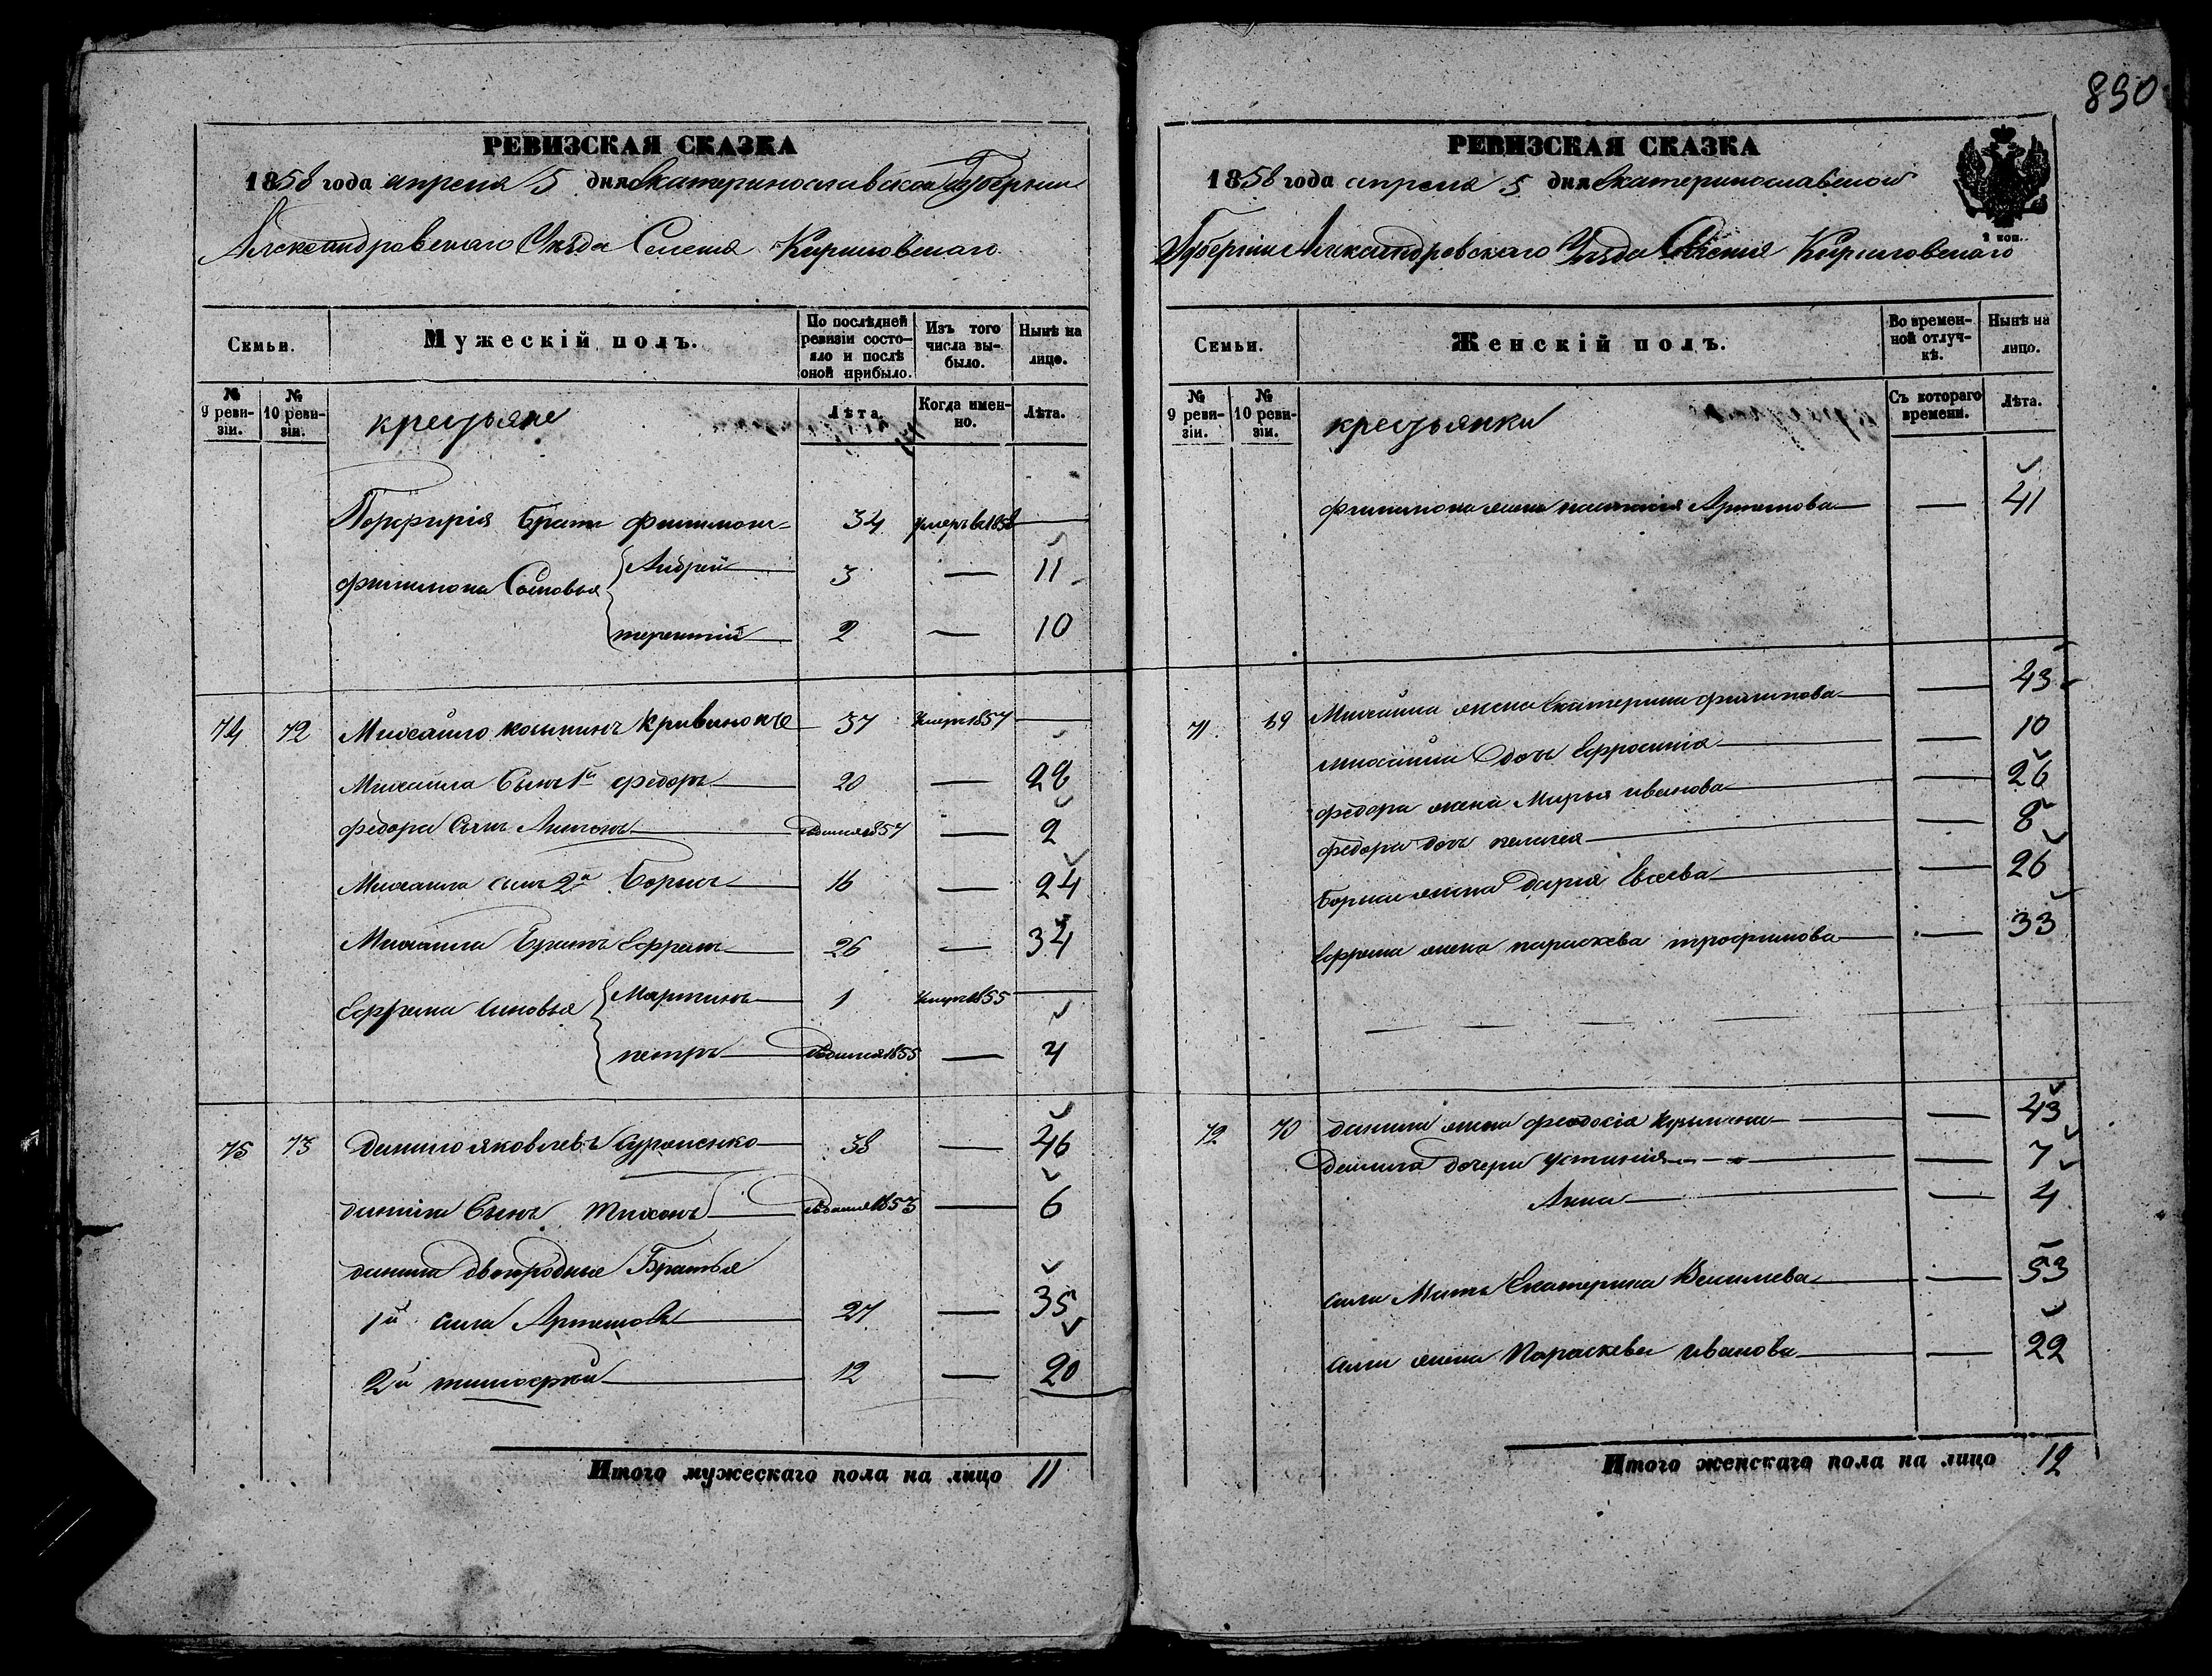 890
РЕВИЗСКАЯ СКАЗКА
1858 года апреля 5 дня Екатеринославской Губернии
Александровскаго Уезда Селения Кириловскаго
Семьи.
Мужескій полъ.
По послѣдней ревизіи состояло и послѣ оной прибыло.
Изъ того числа выбыло.
Нынѣ на лице.
№ 9 ревизіи.
№ 10 ревизіи.
крестьяне
Лѣта.
Когда именно.
Лѣта.
Порфирія братъ Филимонъ 34 умеръ в 1858 —
Филимона Сыновья Андрей 3 — 11
терентий 2 — 10
74 72 Михайло кривонос 37 умеръ 1857 —
Михайла Сынъ 1й федоръ 20 — 28
федора Сынъ Антонъ 1857 — 2
Михаила сынъ 2й Борисъ 16 — 24
Михаила Братъ Ефремъ 26 — 34
Ефрема сыновья Мартинъ 1 умеръ 1855 —
петръ 1855 — 4
75 73 Данило яковлевъ 38 — 46
данила Сынъ Тихонъ 1853 — 6
данила двоюродные Братья
1й сила Артемовъ 27 — 35
2й тимофей 12 — 20
Итого мужескаго пола на лицо 11
РЕВИЗСКАЯ СКАЗКА
1858 года апреля 5 дня Екатеринославской
2 коп.
Губернии Александровскаго Уезда Селения Кириловскаго
Семьи.
Женскій полъ.
Во временной отлучкѣ.
Нынѣ на лицо.
№ 9 ревизіи.
№ 10 ревизіи.
крестьянки
Съ котораго времени.
Лѣта.
филимона жена настасия Артемова — 41
71 69 Михайла жена Екатерина филипова — 43
михайла дочь Ефросиния — 10
федора жена Марья иванова — 26
федора дочь пелагея — 8
Бориса жена Дария Евсеева — 26
Ефрема жена параскева трофимова — 33
72 70 данила жена феодосія — 43
Данила дочери устиния — 7
Анна — 4
силы Мать Екатерина Василиева — 53
силы жена Параскева иванова — 22
Итого женскаго пола на лицо 12